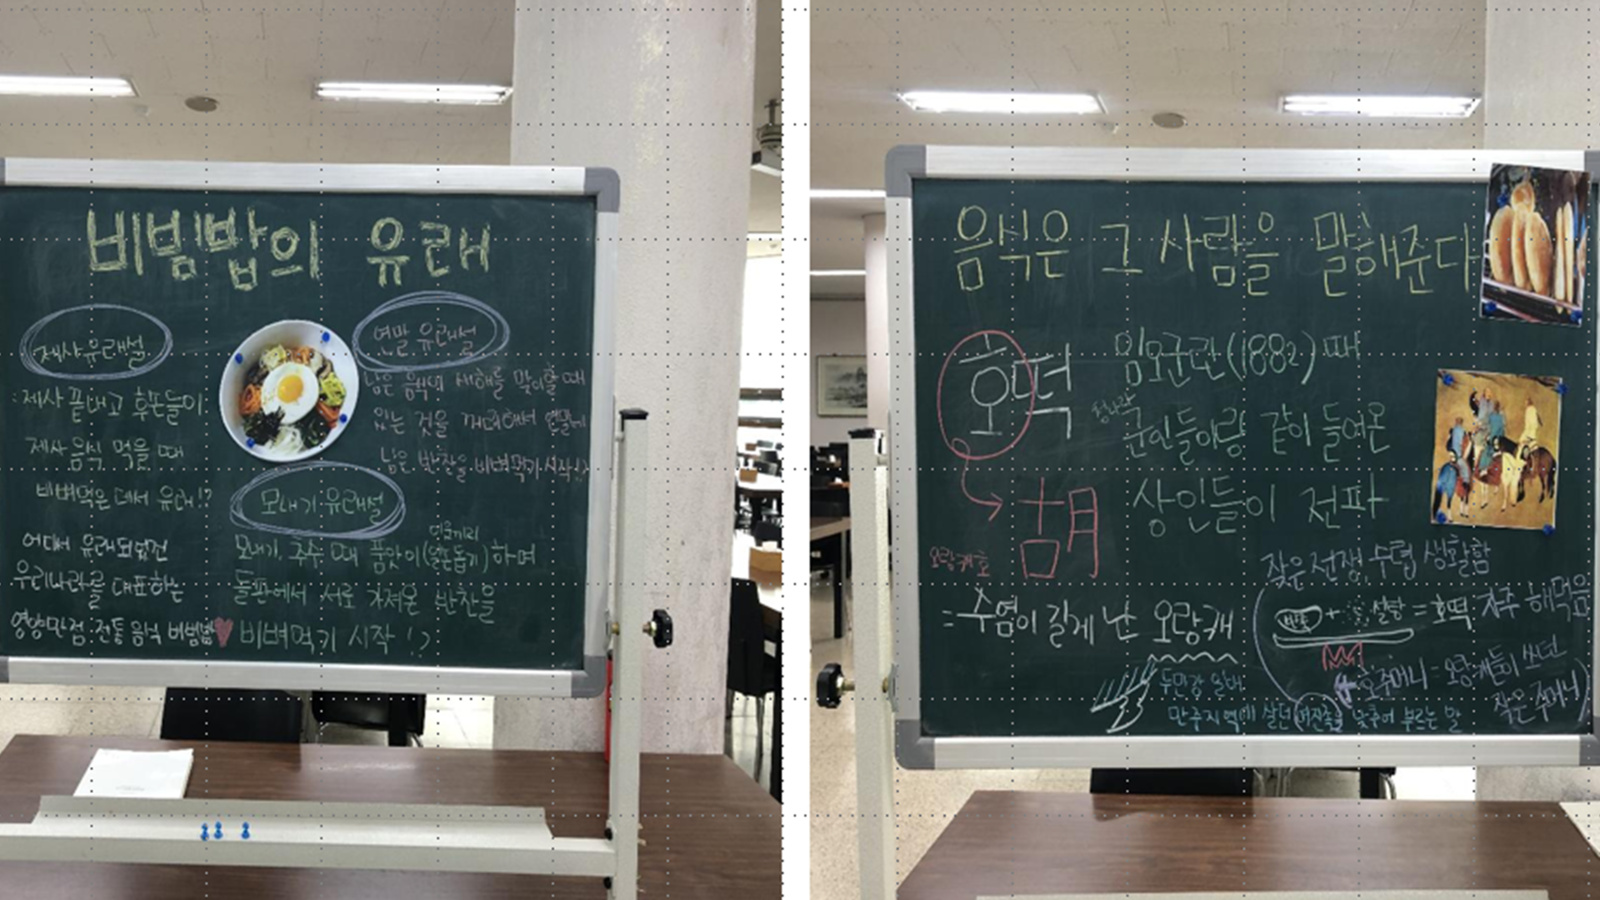 비빔밥의 유래
제사유래설
:제사 끝내고 후손들이
제사 음식 먹을 때
비벼먹은데서 유래!?
연말 유래설
남은 음식이 새해를 맞이할 때
있는 것을 꺼려해서 연말에
남은 반찬을 비벼먹기 시작!?
모내기 유래설
모내기, 추수 때 품앗이(일손돕기)하며
들판에서 서로 가져온 반찬을
비벼먹기 시작!?
어디서 유래되었건
우리나라를 대표하는
영양만점 전통 음식 비빔밥♥
음식은 그 사람을 말해준다
호떡
임오군란(1882) 때
청나라
군인들이랑 같이 들어온
상인들이 전파
十月
口
오랑캐 호
=수염이 길게 난 오랑캐
두만강 일대
만주지역에 살던 여진족을 낮추어 부르는 말
잦은 전쟁, 수렵 생활함
반죽 + 설탕 = 호떡 자주 해먹음
호주머니 = 오랑캐들이 쓰던
작은 주머니